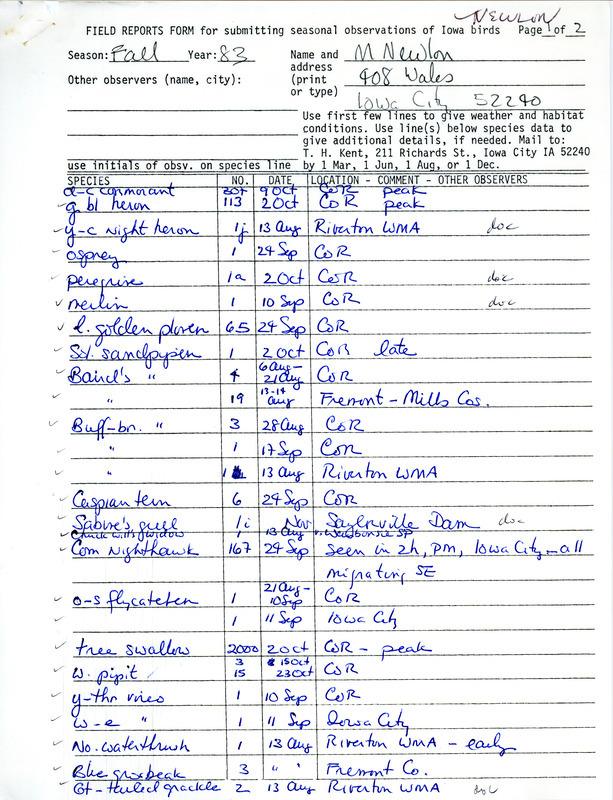 NEWLON
FIELD REPORTS FORM for submitting seasonal observations of Iowa birds Page 1 of 2
Season: Fall Year: 83 Name and M Newlon
address 408 Wales
Other observers (name, city): (print
or type) Iowa City 52240
Use first few lines to give weather and habitat
conditions. Use line(s) below species data to
give additional details, if needed. Mail to:
T. H. Kent, 211 Richards St., Iowa City IA 52240
use initials of obsv. on species line by 1 Mar, 1 Jun, 1 Aug, or 1 Dec.
SPECIES NO. DATE LOCATION - COMMENT - OTHER OBSERVERS
d-c cormorant 9 Oct CoR peak
g bl heron 113 2 Oct CoR peak
y-c night heron 1j 13 Aug Riverton WMA doc
osprey 1 24 Sep CoR
peregrine 1a 2 Oct CoR doc
merlin 1 10 Sep CoR doc
l. golden plover 65 24 Sep CoR
St. sandpiper 1 2 Oct CoR late
Baird's " 4 6 Aug- 21 Aug CoR
" 19 13-14 Aug Fremont - Mills Cos.
Buff-br. " 3 28 Aug CoR
" 1 17 Sep CoR
" 1 13 Aug Riverton WMA
Caspian tern 6 24 Sep CoR
Sabine's gull 1i Nov Saylorville Dam doc
Chuck will's widow 1 13 Aug Waubonsie SP
Com Nighthawk 167 24 Sep Seen in 2h, PM, Iowa City - all
migrating SE
o-s flycatcher 1 21 Aug- 10 Sep CoR
1 11 Sep Iowa City
tree swallow 2000 2 Oct CoR - peak
w. pipit 3 15 Oct
15 23 Oct CoR
y-thr vireo 1 10 Sep CoR
w-e " 1 11 Sep Iowa City
No. waterthrush 1 13 Aug Riverton WMA - early
Blue grosbeak 3 " " Fremont Co.
Gt-tailed grackle 2 13 Aug Riverton WMA doc